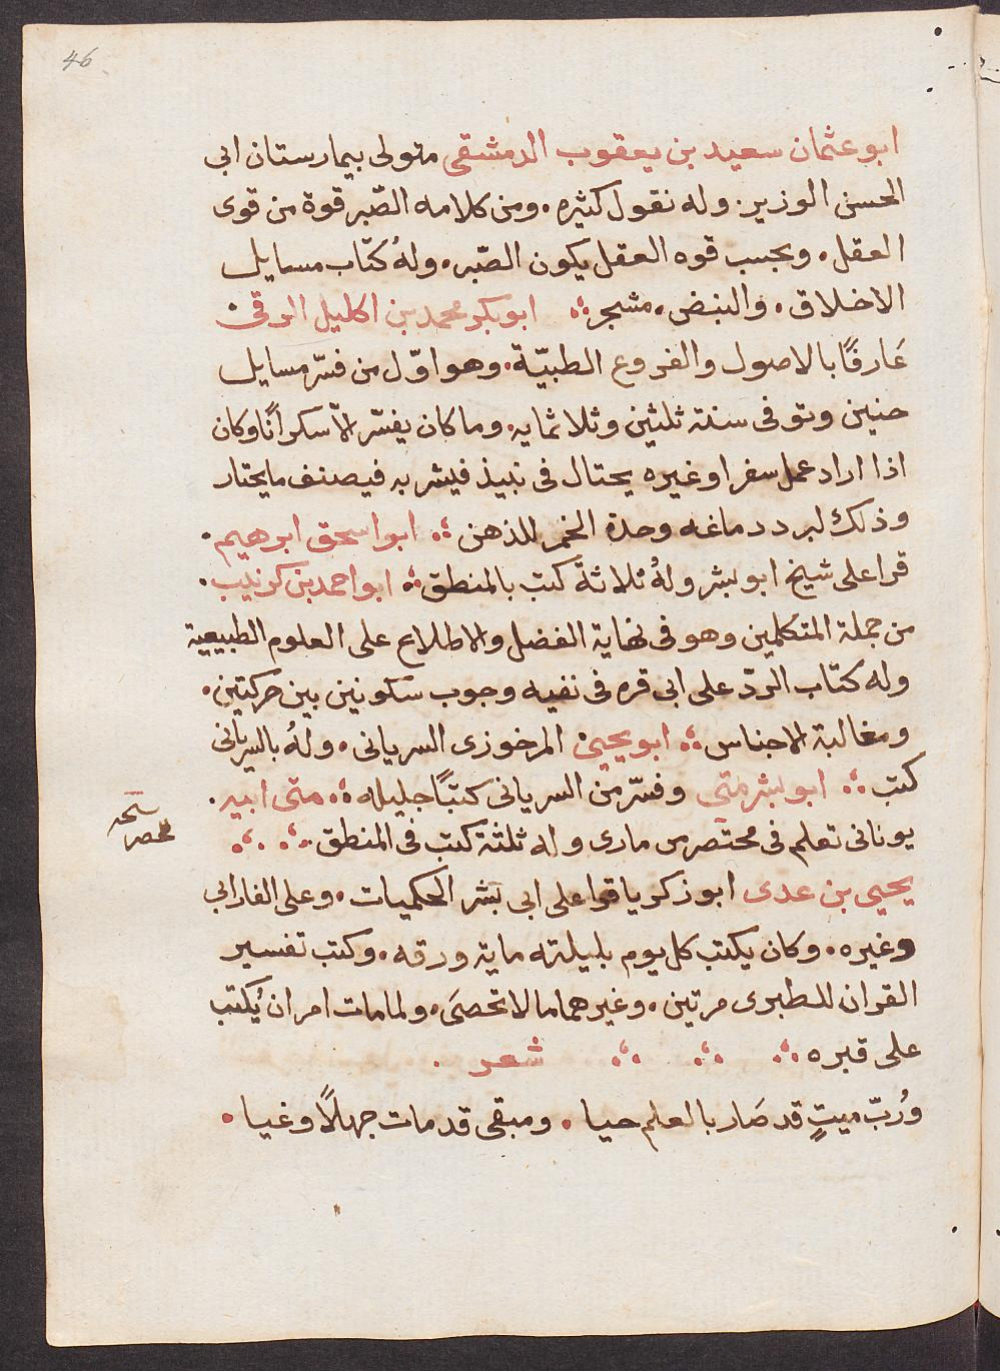 46
ابو عثمان سعيد بن يعقوب الدمشقى متولى بيمارستان ابى
الحسن الوزير. وله نقول كثيره. ومن كلامه الصّبر قوة من قوى
العقل. وبحسب قوه العقل يكون الصّبر. ولهُ كتاب مسايل
الاخلاق. والنبض. مشجر؞ ابو بكر محمد بن اكليل الرقى.
عَارفًا بالاصول والفروع الطبيّة. وهو اوّل من فسّر مسايل
حنين وتوفى سنة ثلثين وثلاثمايه. وما كان يفسّر الاّ سكرانًا وكان
اذا اراد عمل سفر او غيره يحتال فى نبيذ فيشربه فيصنف ما يختار
وذلك لبرد دماغه وحدة الخمر للذهن ؞ ابو اسحق ابرهيم.
قرا على شيخ ابو بشر ولهُ ثلاثة كتب بالمنطق ؞ ابو احمد بن كرنيب.
من جملة المتكلمين وهو فى نهاية الفضل والاطلاع على العلوم الطبيعية
وله كتاب الردّ على ابى قره فى نفيه وجوب سكونين بين حركتين.
ومغالبة الاجناس ؞ ابو يحيى المرخوزى السريانى. ولهُ بالسريانى
كتب ؞ ابو بشر متى وفسّر من السريانى كتبًا جليله ؞ متى ابيه.
يونانى تعلم فى مختصر من مارى وله ثلثة كتب فى المنطق ؞ ؞
يحيى بن عدى ابو زكريا قرا على ابى بشر الحكميات. وعلى الفارابى
وغيره. وكان يكتب كل يوم بليلته ماية ورقه. وكتب تفسير
القران للطبرى مرتين. وغيرهما ما لا تحصَى. ولما مات امر ان يُكتب
على قبره ؞ ؞ ؞ شعر .
ورُبّ ميتٍ قد صَار بالعلم حيا. ومبقى قد مات جهلاً وغيا.